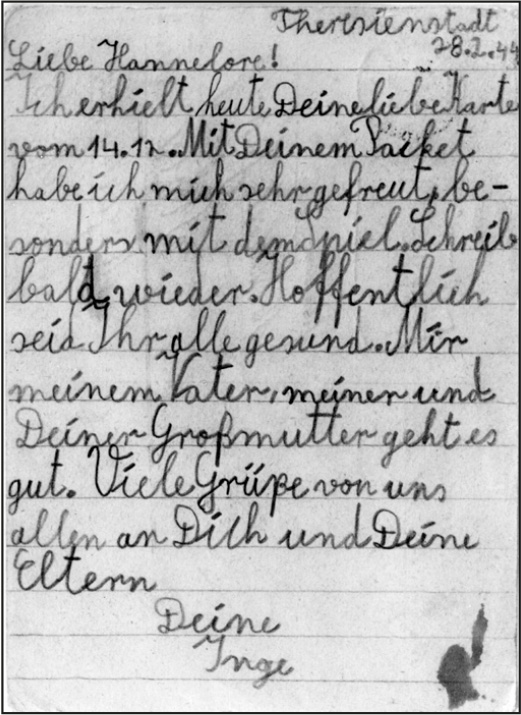 Theresienstadt
28.2.44
Liebe Hannelore!
Ich erhielt heute Deine liebe Karte
vom 14.12. Mit Deinem Packet
habe ich mich sehr gefreut, be-
sonders mit dem Spiel. Schreib
bald wieder. Hoffentlich
seid Ihr alle gesund. Mir
meinem Vater, meiner und
Deiner Großmutter geht es
gut. Viele Grüße von uns
allen an Dich und Deine
Eltern
Deine
Inge